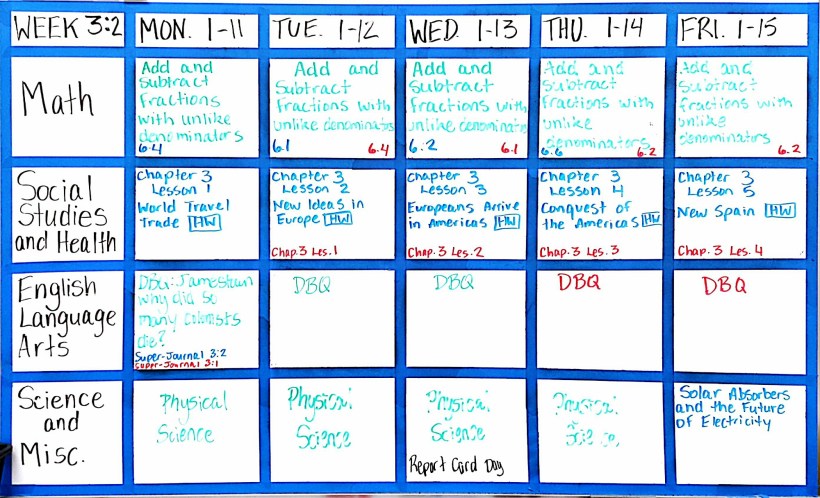 WEEK 3:2
MON. 1-11
TUE. 1-12
WED. 1-13
THU. 1-14
FRI. 1-15
Math
Add and
Subtract
Fractions
with unlike
denominators
6.4
Add and
Subtract
Fractions with
unlike denominators
6.1 6.4
Add and
Subtract
Fractions with
unlike denominators
6.2 6.1
Add and
Subtract
Fractions with
unlike
denominators
6.6 6.2
Add and
Subtract
fractions with
unlike
denominators
6.2
Social
Studies
and Health
Chapter 3
Lesson 1
World Travel
Trade HW
Chapter 3
Lesson 2
New Ideas in
Europe HW
Chap. 3 Les. 1
Chapter 3
Lesson 3
Europeans Arrive
in Americas HW
Chap. 3 Les. 2
Chapter 3
Lesson 4
Conquest of
the Americas HW
Chap. 3 Les. 3
Chapter 3
Lesson 5
New Spain HW
Chap. 3 Les. 4
English
Language
Arts
DBQ: Jamestown
Why did so
many colonists
die?
Super-Journal 3:2
Super-Journal 3:1
DBQ
DBQ
DBQ
DBQ
Science
and
Misc.
Physical
Science
Physical
Science
Physical
Science
Report Card Day
Physical
Science
Solar Absorbers
and the Future
of Electricity